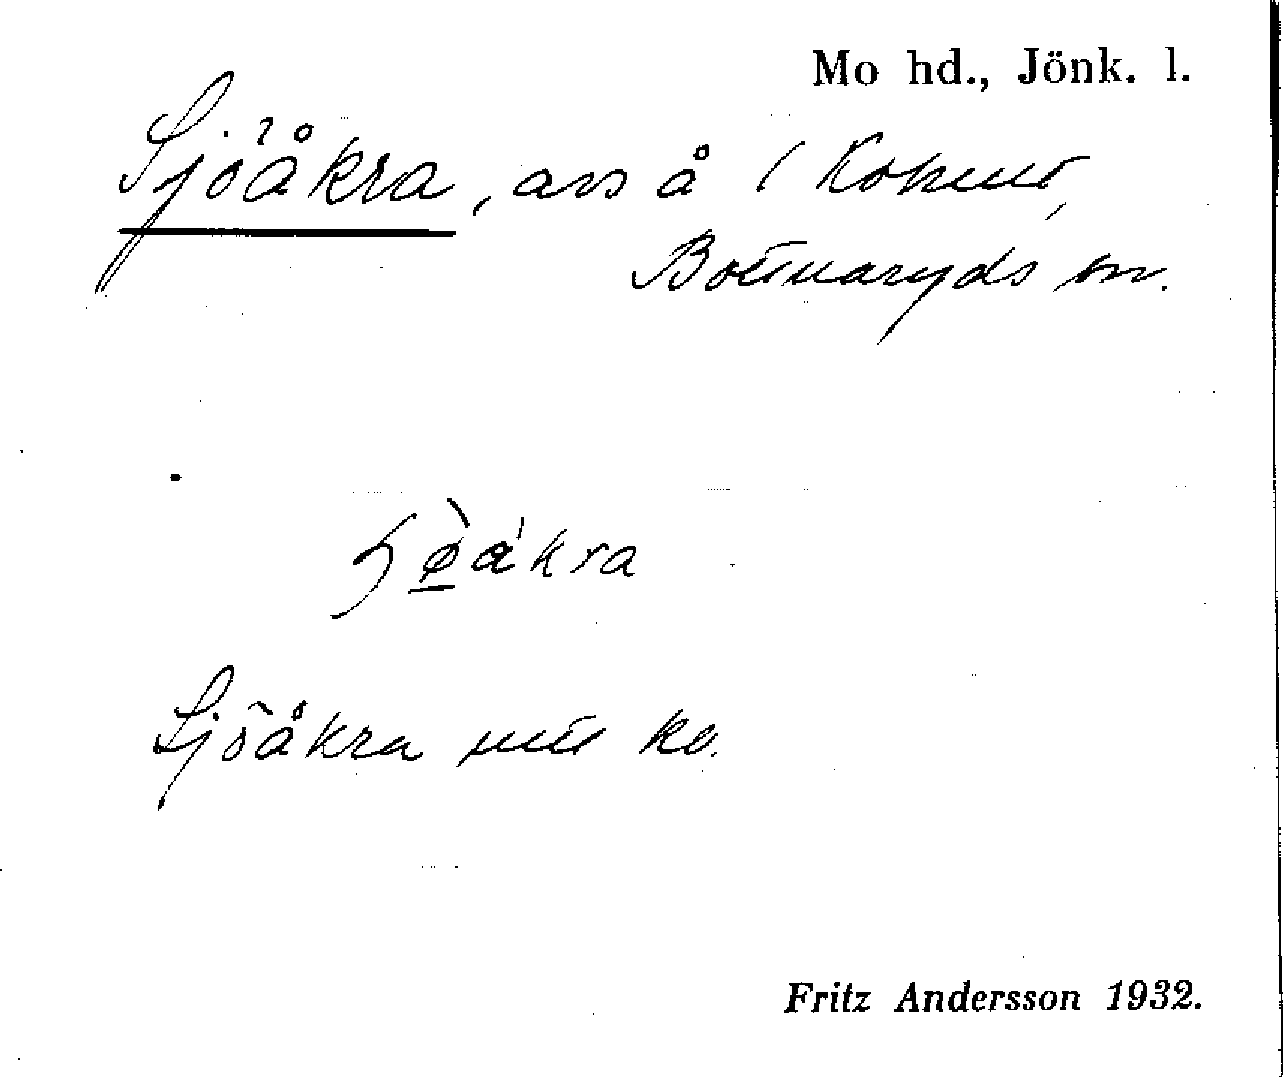 Mo hd., Jönk. l.
Sjöåkra, avs å / Kohult,
Bottnaryds sn.
Sjöåkra ute ko.
Fritz Andersson 1932.